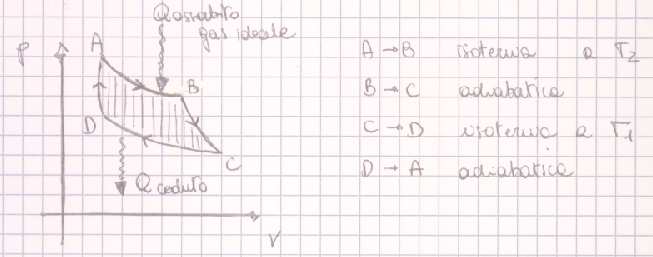 Q assorbito
gas ideale
P
A
B
D
C
Q ceduto
V
A → B isoterma a T2
B → C adiabatica
C → D isoterma a T1
D → A adiabatica